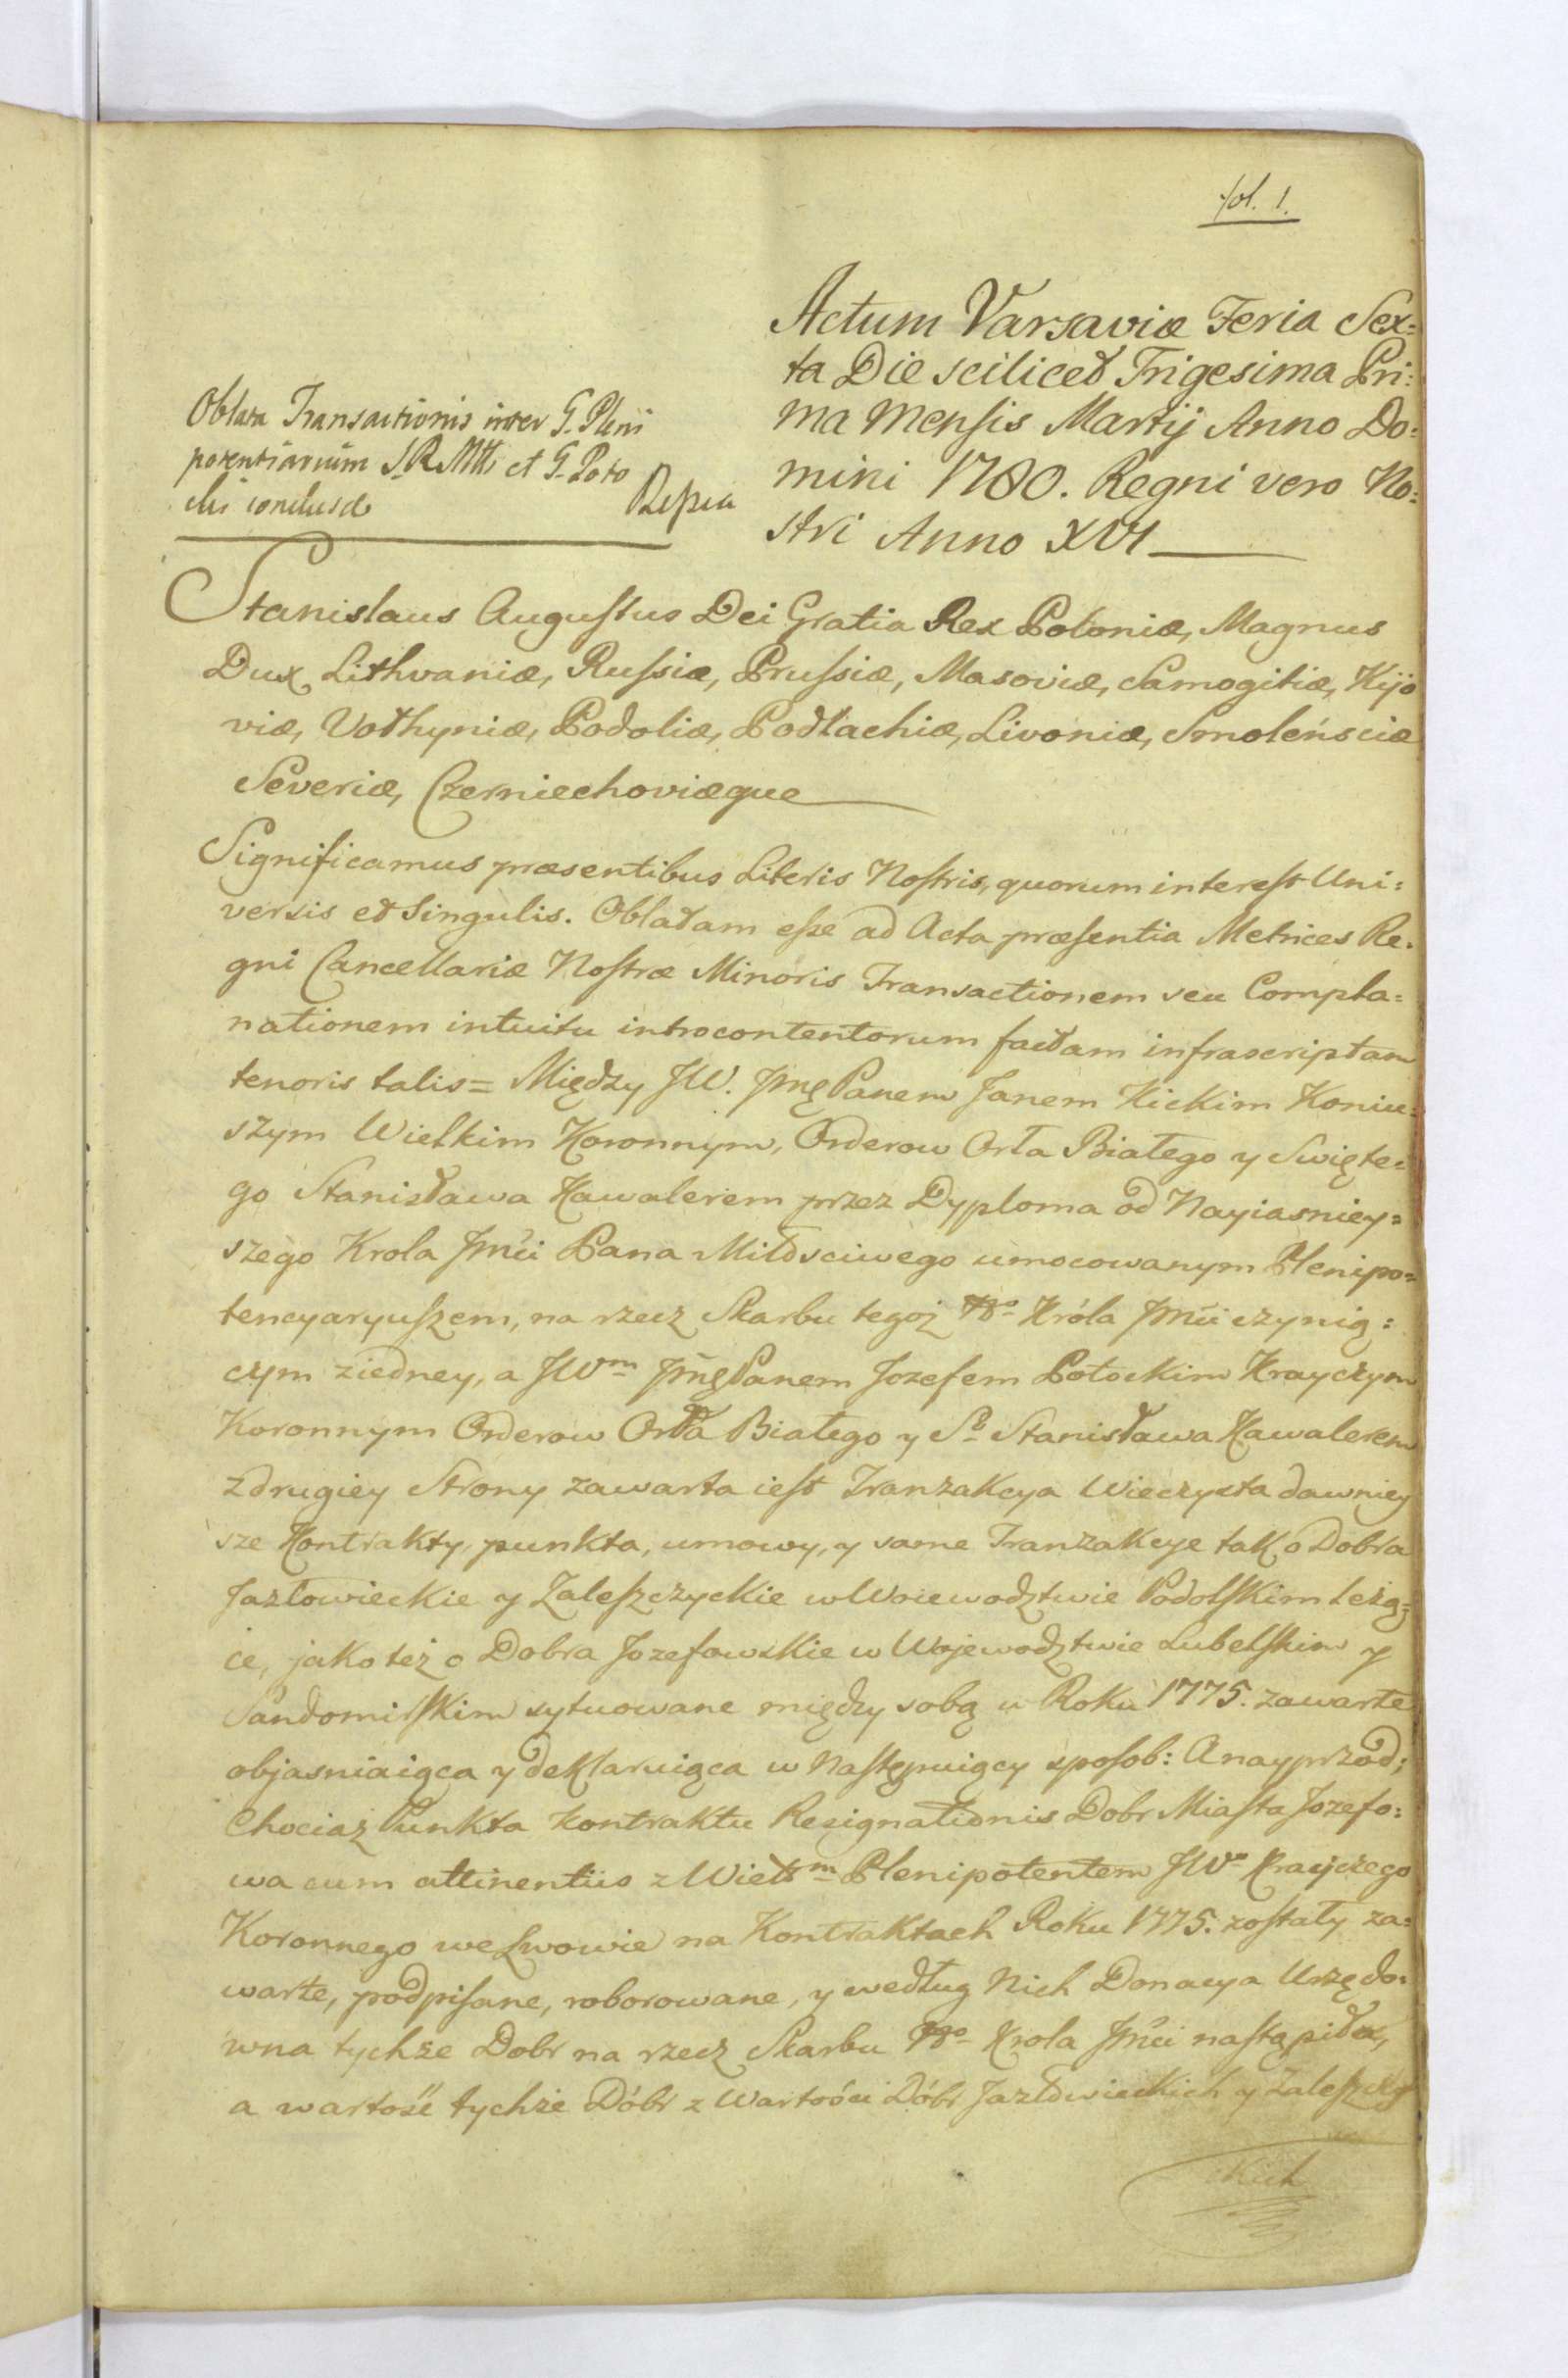 fol. 1.
Actum Varsaviæ Feria Sex=
ta Die scilicet Trigesima Pri=
ma Mensis Martij Anno Do=
mini 1780. Regni vero No=
stri Anno XVI
Oblata Transactionis inter G. Pleni
potentiarium S. R. Mtti et G. Poto
cki conclusæ
Stanislaus Augustus Dei Gratia Rex Poloniæ, Magnus
Dux Lithvaniæ, Russiæ, Prussiæ, Masoviæ, Samogitiæ, Kijo
viæ, Volhyniæ, Podoliæ, Podlachiæ, Livoniæ, Smolenściæ
Severiæ, Czerniechoviæque
Significamus præsentibus Literis Nostris, quorum interest Uni=
versis et Singulis. Oblatam esse ad Acta præsentia Metrices Re=
gni Cancellariæ Nostræ Minoris Transactionem seu Compla=
nationem intuitu introcontentorum factam infrascriptam
tenoris talis= Między JW. Jmę Panem Janem Kickim Koniu=
szym Wielkim Koronnym, Orderow Orła Białego y Swięte=
go Stanisława Kawalerem przez Dyploma od Nayiasniey=
szego Krola Jmći Pana Miłosciwego umocowanym Plenipo=
tencyaryuszem, na rzecz Skarbu tegoż Króla Jmći czynią=
cym ziedney, a JWm Jmę Panem Jozefem Potockim Krayczym
Koronnym Orderow Orła Białego y So Stanisława Kawalerem
zdrugiey Strony zawarta iest Tranzakcya Wieczysta dawniey
sze Kontrakty, punkta, umowy, y same Tranzakcye tak o Dobra
Jazłowieckie y Zaleszczyckie w Woiewodztwie Podolskim leżą=
ce, jako też o Dobra Jozefowskie w Wojewodztwie Lubelskim y
Sandomirskim sytuowane między sobą w Roku 1775. zawarte
objasniaiąca y deklaruiąca w Następuiący sposob: A nayprzod;
Chociaż Punkta kontraktu Resignationis Dobr Miasta Jozefo=
wa cum attinentiis z Wielm Plenipotentem JWo Krayczego
Koronnego we Lwowie na Kontraktach Roku 1775. zostały za=
warte, podpisane, roborowane, y według Nich Donacya Urzędo=
wna tychże Dobr na rzecz Skarbu Krola Jmći nastąpiła,
a wartość tychże Dóbr z Wartości Dóbr Jazłowieckich y Zaleszczy
ckich